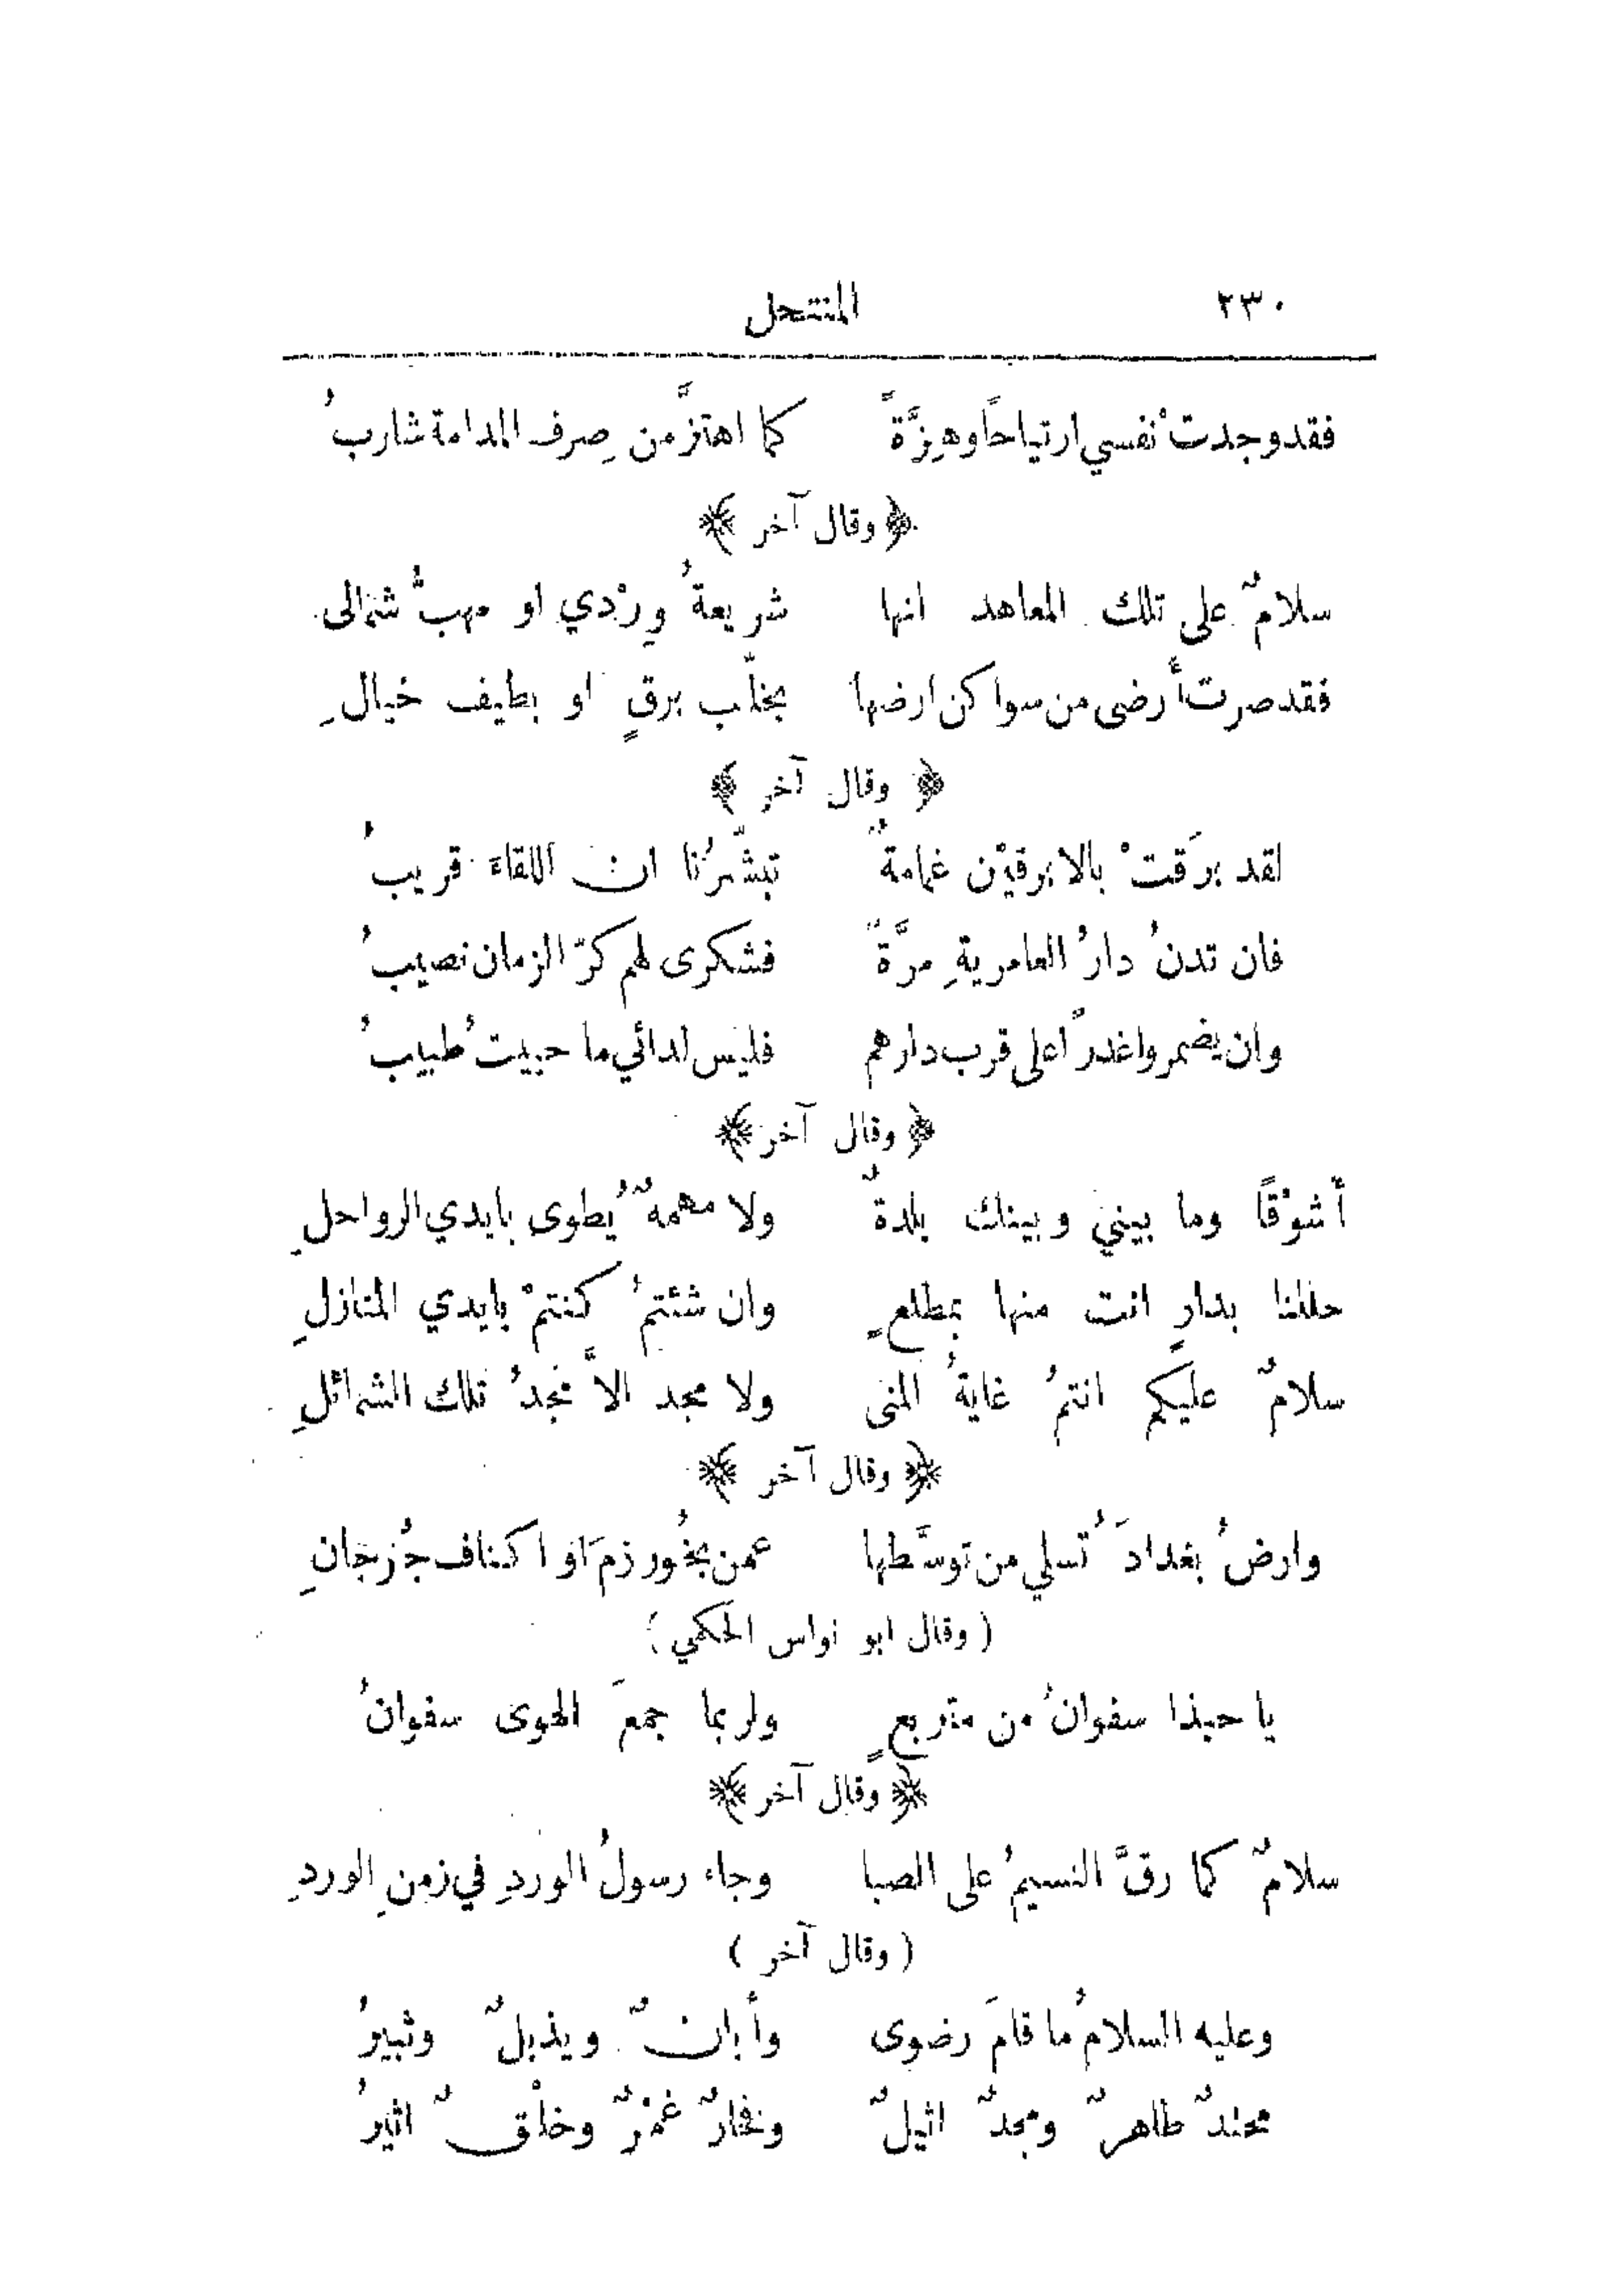 ٢٣٠ المنتحل
فقد وجدتْ نفسي ارتياحاً وهِزَّةً كما اهتزَّ من صِرف المدامة شاربُ
﴿ وقال آخر ﴾
سلامٌ على تلك المعاهد انها شريعةُ وِرْدي او مهبُّ شمالى
فقد صرت أرضى من سواكن ارضها بخلّب برقٍ او بطيف خيالِ
﴿ وقال آخر ﴾
لقد برَقتْ بالابرقيْن غمامةٌ تبشّرُنا ان اللقاءَ قريبُ
فان تدنُ دارُ العامريةِ مرَّةً فشكرى لهم كرّ الزمان نصيبُ
وان يضمروا غدراً على قرب دارهم فليس لدائي ما حييت ُ طبيبُ
﴿ وقال آخر ﴾
أشوْقاً وما بيني وبينك بلدةٌ ولا مهمهٌ يُطوى بايدي الرواحلِ
حللنا بدارٍ انت منها بمطلعٍ وان شئتمُ كنتمْ بايدي المنازلِ
سلامٌ عليكم انتمُ غايةُ المنى ولا مجد الاَّ مجدُ تلك الشمائلِ
﴿ وقال آخر ﴾
وارضُ بغدادَ تُسلي من توسَّطها عمن بخُورزمَ او اكناف جُرجانِ
( وقال ابو نواس الحكمي )
يا حبذا سفوانُ من متربعٍ ولربما جمعَ الهوى سفوانُ
﴿ وقال آخر ﴾
سلامٌ كما رقَّ النسيمُ على الصبا وجاء رسولُ الوردِ في زمنِ الوردِ
( وقال آخر )
وعليه السلامُ ما قامَ رضوى وأبانٌ ويذبلٌ وثبيرُ
محتدٌ طاهرٌ ومجدٌ اثيلٌ وفخارٌ غمْرٌ وخلْقٌ اثيرُ